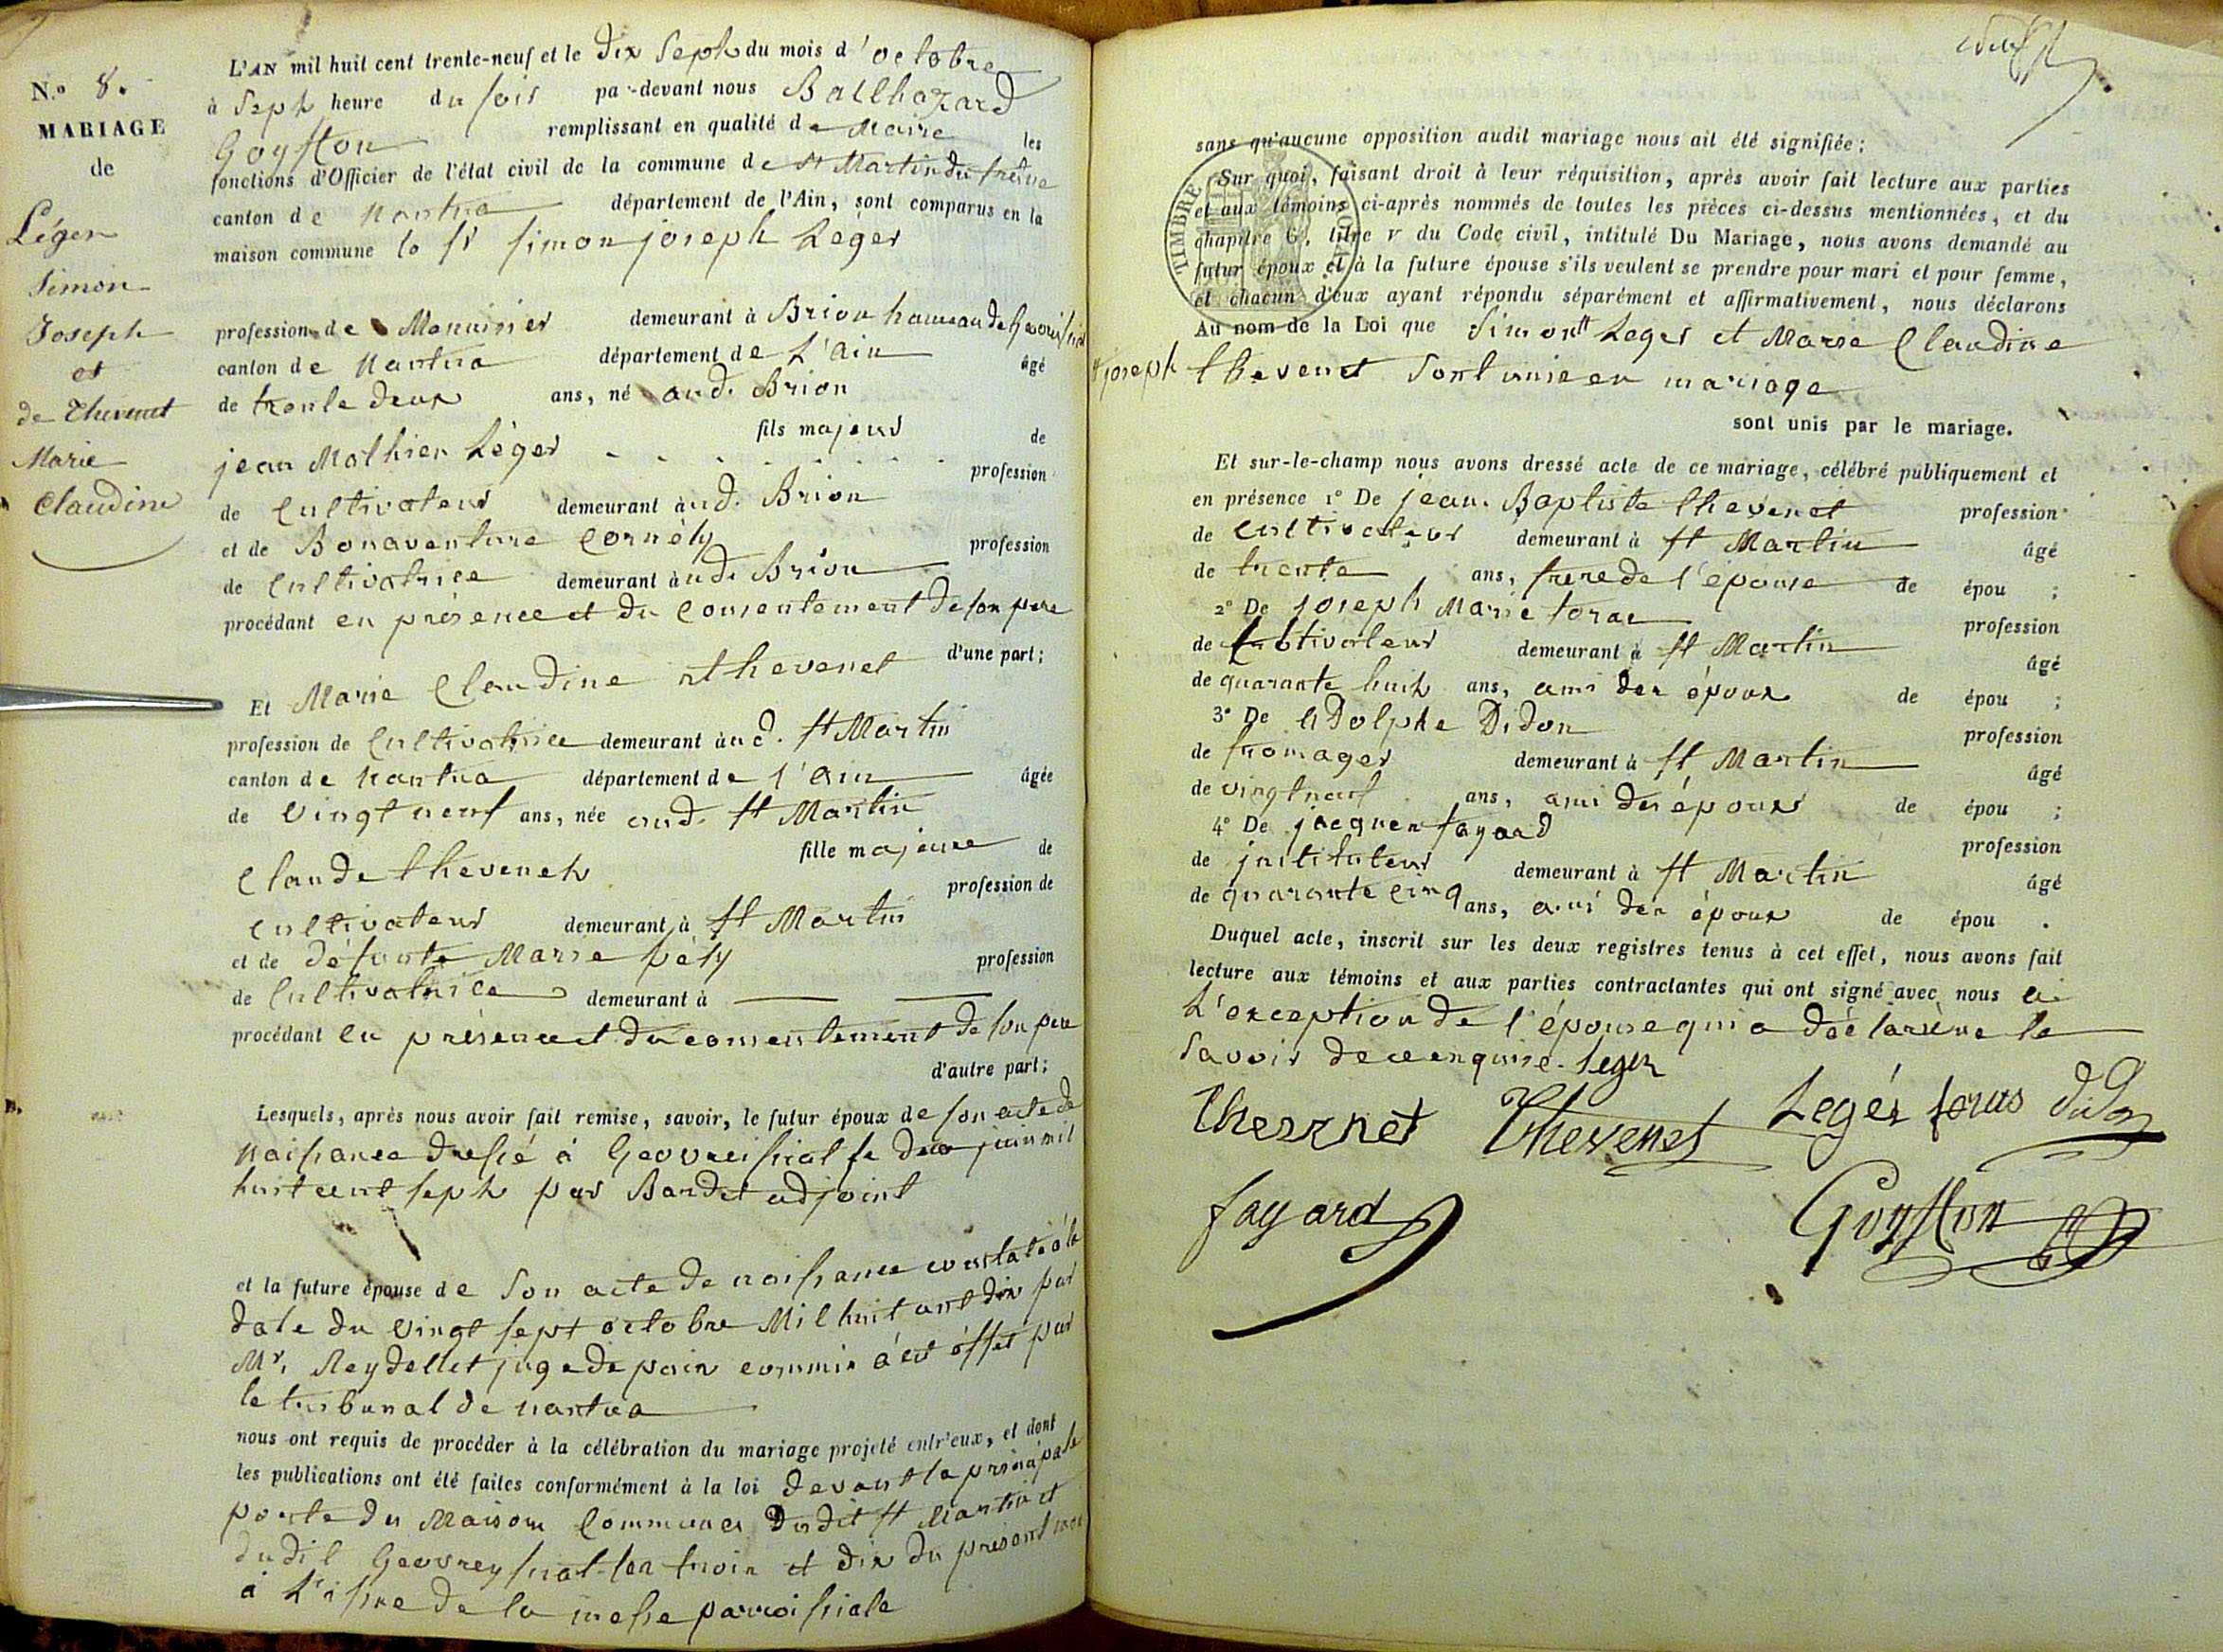 N.° 8.
MARIAGE
de
Léger
Simon
Joseph
et
de Thevenet
Marie
Claudine
L'AN mil huit cent trente-neuf et le dix sept du mois d'octobre
à sept heure du soir par-devant nous Balthazard
Goyffon remplissant en qualité de Maire les
fonctions d'Officier de l'état civil de la commune de St Martin du frêne
canton de Nantua département de l'Ain, sont comparus en la
maison commune le sr simon joseph Leger
profession de Menuisier demeurant à Brion hameau de
canton de Nantua département de L'ain âgé
de trente deux ans, né aud. Brion
fils majeur de
jean Mathieu Léger profession
de Cultivateur demeurant aud. Brion
et de Bonaventure Cornély profession
de Cultivatrice demeurant aud. Brion
procédant en présence et du Consentement de son pere
d'une part;
Et Marie Claudine thevenet
profession de Cultivatrice demeurant aud. st Martin
canton de Nantua département de l'ain âgée
de vingt neuf ans, née aud. st Martin
fille majeure de
Claude thévenet profession de
Cultivateur demeurant à st Martin
et de défunte Marie pély profession
de Cultivatrice demeurant à
procédant en présence et du consentement de son pere
d'autre part;
Lesquels, après nous avoir fait remise, savoir, le futur époux de son acte de
naissance dressé à Geovreissiat le deux juin mil
huit cent sept par Bardet adjoint
et la future épouse de son acte de naissance constaté à la
date du vingt sept octobre Mil huit cent dix par
Mr. Reydellet juge de paix commis à cet éffet par
le tribunal de nantua
nous ont requis de procéder à la célébration du mariage projeté entr'eux, et dont
les publications ont été faites conformément à la loi devant la principale
porte du Maison Communes dudit st Martin et
dudit Geovreyssiat les trois et dix du present mois
à L'issue de la messe parroissiale
sans qu'aucune opposition audit mariage nous ait été signifiée;
Sur quoi, faisant droit à leur réquisition, après avoir fait lecture aux parties
et aux témoins ci-après nommés de toutes les pièces ci-dessus mentionnées, et du
chapitre 6, titre v du Code civil, intitulé Du Mariage, nous avons demandé au
futur époux et à la future épouse s'ils veulent se prendre pour mari et pour femme,
et chacun d'eux ayant répondu séparément et affirmativement, nous déclarons
Au nom de la Loi que Simon Leger et Marie Claudine
joseph thevenet sont unie en mariage
sont unis par le mariage.
Et sur-le-champ nous avons dressé acte de ce mariage, célébré publiquement et
en présence 1° De jean Baptiste thevenet profession
de Cultivateur demeurant à st Martin âgé
de trente ans, frere de l'épouse de épou ;
2° De joseph Marie forae profession
de Cultivateur demeurant à st Martin âgé
de quarante huit ans, ami des époux de épou ;
3° De adolphe Didon profession
de fromager demeurant à st Martin âgé
de vingt neuf ans, ami des époux de épou ;
4° De jacques fayard profession
de jnstituteur demeurant à st Martin âgé
de quarante cinq ans, ami des époux de épou .
Duquel acte, inscrit sur les deux registres tenus à cet effet, nous avons fait
lecture aux témoins et aux parties contractantes qui ont signé avec nous à
L'exception de l'épouse qui a déclaré ne le
savoir de ce enquise. leger
Thevenet Thevenet Legér foras didon
fayard Goyffon
TIMBRE ROYAL